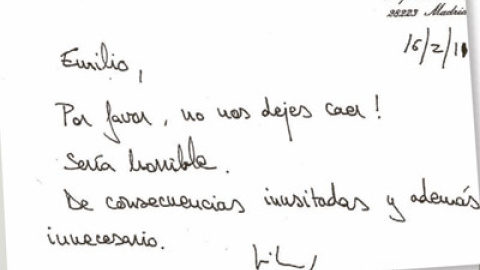 28223 Madrid
16/2/11
Emilio,
Por favor, no nos dejes caer!
Sería horrible.
De consecuencias inusitadas y además
innecesario.